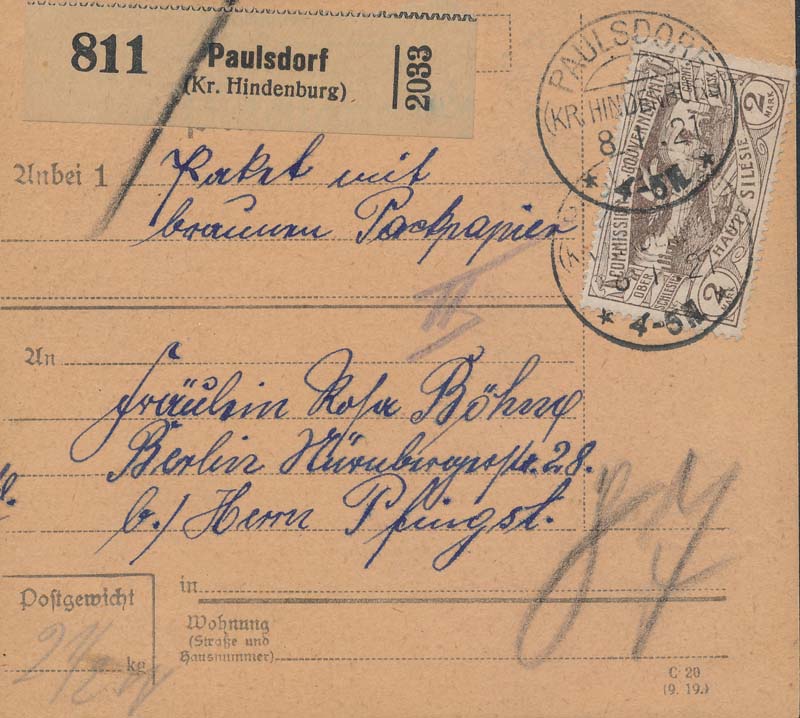 811 Paulsdorf 2033
(Kr. Hindenburg)
PAULSDORF
(KR. HINDENBURG)
8. 21
4-5N
COMMISSION GOUVERNEMENT
HAUTE SILESIE
OBER SCHLESIEN
2 MARK
2 MARK
4-5N
Anbei 1 Paket mit
braunen Packpapier
II
An
Fräulein Rosa Böhme
Berlin Nürnbergerstr. 28.
b./ Herrn Pfingst.
in
Postgewicht
2 1/2
kg
Wohnung
(Straße und
Hausnummer)
C 20
(9. 19.)